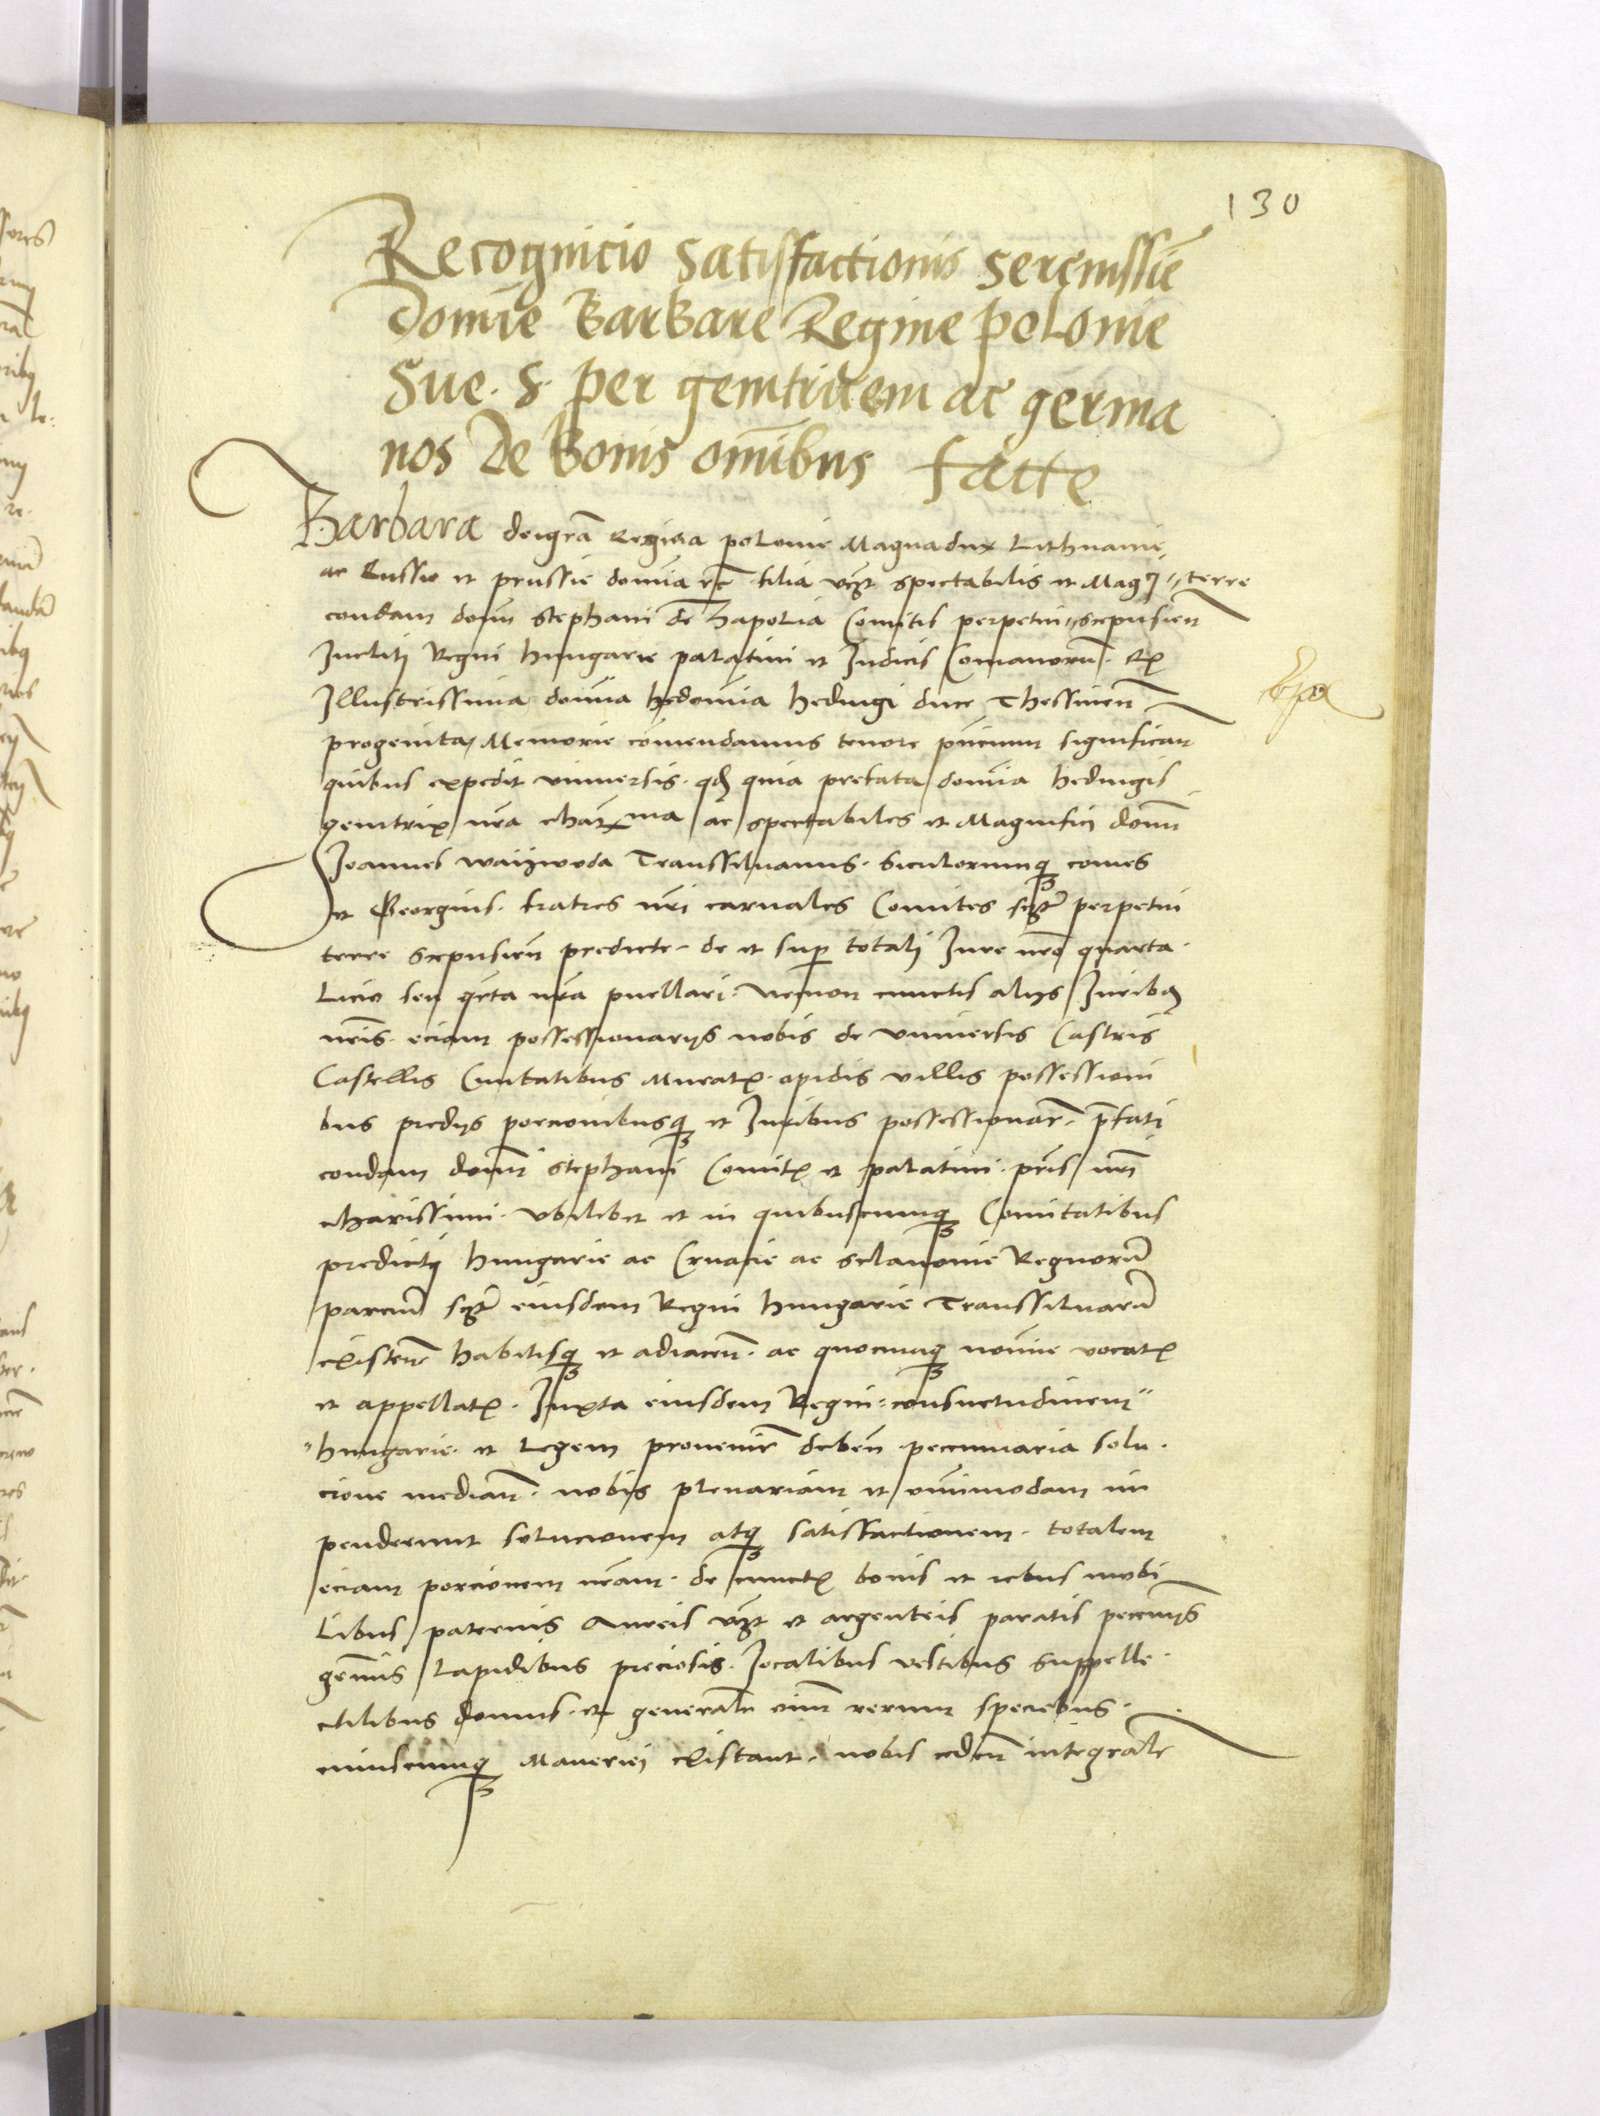 130
Recognicio satisfactionis serenissīe
Domīe Barbare Regine polonie
Sue. S. per genitricem ac germa
nos De bonis omībus facte
Barbara deigrā Regina polonie Magnadux Lithuanie,
ac Russie et prussie domīa rc̄ filia vꝫt spectabilis et Mag⁊ terre
condam domī Stephani de Zapolia Comitis perpetui Scepusieñ
Incliti Regni Hungarie palatini et Iudicis Comanorū. Ex
Illustrissima domīa hedomīa Hedvigi duce Thessineñ
progenita, Memorie comendamus tenore p̄ncium significañ
quibus expedit vniuersis. qđ quia prefata domīa Hedvigis
genitrix nrā charma ac spectabiles et Magnifici domī
Joannes waywoda Transsiluanus. Siculorumqꝫ comes
et Georgius. fratres nrī carnales Comites sꝫtr perpetui
terre Scepusieñ predicte. de et sup totali Iure nrō quarta.
Licio seu qrta nrā puellari. necnon cunctis alijs Iuribꝫ
nrīs. eciam possessionarijs nobis de vniuersis Castris
Castellis Ciuitatibus Muratꝭ. opidis villis possessioni
bus predijs porcionibusqꝫ et Iuribus possessionar̄. p̄fati
condam domī Stephani Comitꝭ et palatini. pr̄is nrī
charissimi. vbilibet et in quibuscumqꝫ Comitatibus
predictj Hungarie ac Cruacie ac Sclauonie Regnorū
parciū sꝫtr eiusdem Regni Hungarie Transsiluanarū
existeñ habitisqꝫ et adiaceñ. ac quocumqꝫ nomīe vocatꝭ
et appellatꝭ. Iuxta eiusdem Regni: consuetudinem"
"hungarie. et Legem proueniɾ̄ debeñ pecuniaria solu.
cione mediañ. nobis plenariam et omīmodam im
penderunt solucionem atqꝫ satisfactionem. totalem
eciam porcionem nrām. de cunctꝭ bonis et rebus mobi
libus paternis Aureis vꝫt et argenteis paratis pecunijs
gemīs Lapidibus preciosis. Iocalibus vestibus Suppelle.
ctilibus domus. et generalr̄ oīm rerum speciebus.
cuiuscumqꝫ Maneriei existant. nobis cedeñ integralr̄